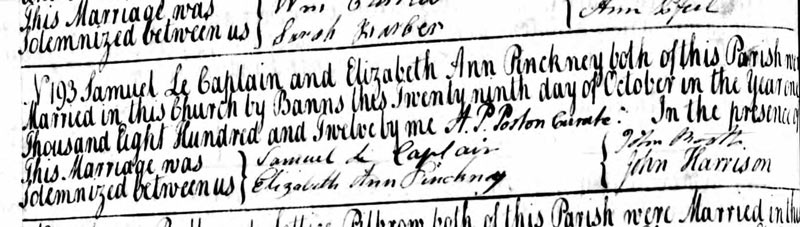 This Marriage was { Wm
Solemnized between us Sarah Barber { Ann
No 193 Samuel Le Caplain and Elizabeth Ann Pinckney both of this Parish were
Married in this Church by Banns this Twenty ninth day of October in the Year one
Thousand Eight Hundred and Twelve by me A. P. Poston Curate. In the presence of
This Marriage was } Samuel Le Caplain { John
Solemnized between us } Elizabeth Ann Pinckney { John Harrison
Pithrow both of this Parish were Married in this